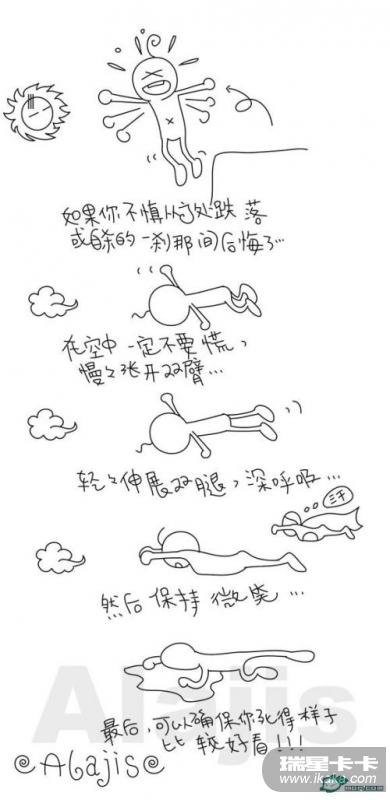 如果你不慎从高处跌落
或自杀的一刹那间后悔了...
在空中一定不要慌，
慢々张开双臂...
轻々伸展双腿，深呼吸...
三千
然后保持微笑...
Alajis
最后，可以确保你死得样子
比较好看!!!
Alajis
瑞星卡卡
www.ikaka.com